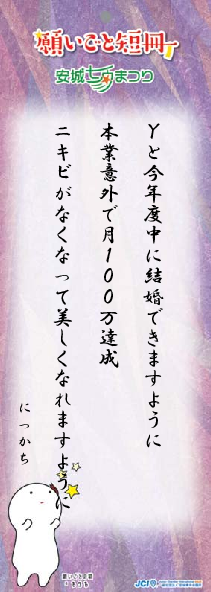 願いごと短冊
安城七夕まつり
Yと今年度中に結婚できますように
本業意外で月100万達成
ニキビがなくなって美しくなれますように
にっかち
願いごと短冊
JCI